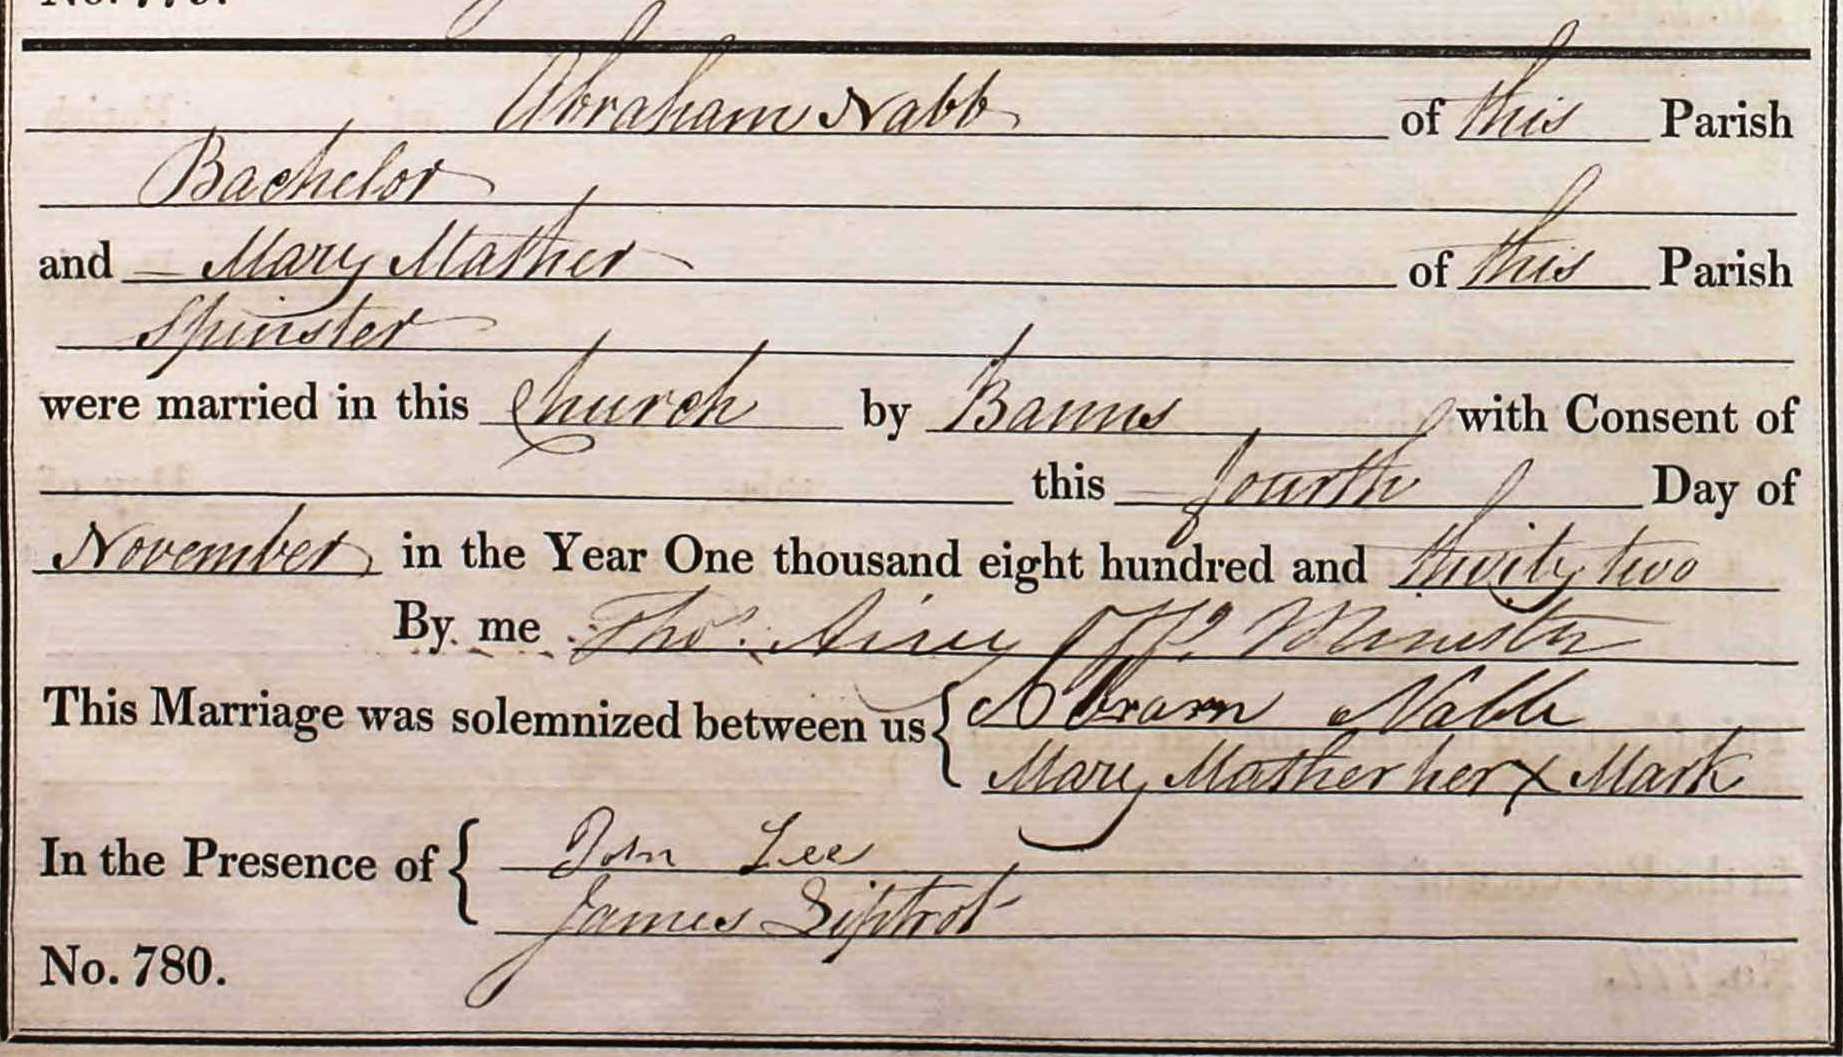 Abraham Nabb of this Parish
Bachelor
and Mary Mather of this Parish
Spinster
were married in this Church by Banns with Consent of
this fourth Day of
November in the Year One thousand eight hundred and thirty two
By me Thos. Airey Offg. Minister
This Marriage was solemnized between us { Abram Nabb
Mary Mather her X Mark
In the Presence of { John Lee
James Siptrot
No. 780.